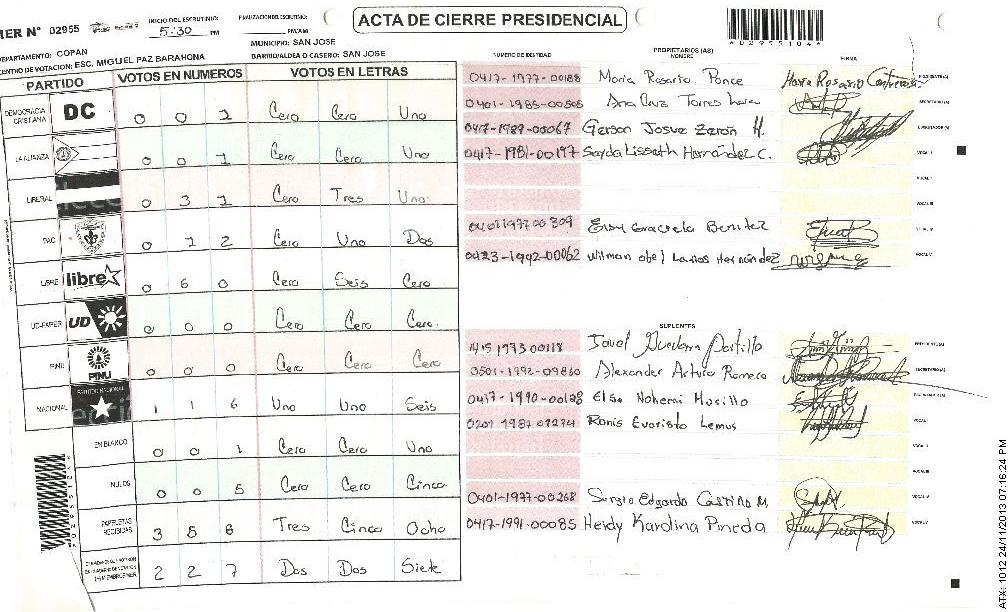 ACTA DE CIERRE PRESIDENCIAL
MER N° 02955
INICIO DEL ESCRUTINIO:
5:30 PM
FINALIZACION DEL ESCRUTINIO:
PM/AM
*029551044*
DEPARTAMENTO: COPAN
MUNICIPIO: SAN JOSE
CENTRO DE VOTACION: ESC. MIGUEL PAZ BARAHONA
BARRIO/ALDEA O CASERIO: SAN JOSE
PARTIDO VOTOS EN NUMEROS VOTOS EN LETRAS
DEMOCRACIA CRISTIANA DC 0 0 1 Cero Cero Uno
LA ALIANZA 0 0 1 Cero Cero Uno
LIBERAL 0 3 1 Cero Tres Uno
PAC 0 1 2 Cero Uno Dos
LIBRE libre 0 6 0 Cero Seis Cero
UD-FAPER UD 0 0 0 Cero Cero Cero
PINU PINU 0 0 0 Cero Cero Cero
NACIONAL PARTIDO NACIONAL 1 1 6 Uno Uno Seis
EN BLANCO 0 0 1 Cero Cero Uno
NULOS 0 0 5 Cero Cero Cinco
PAPELETAS RECIBIDAS 3 5 8 Tres Cinco Ocho
2 2 7 Dos Dos Siete
NUMERO DE IDENTIDAD
PROPIETARIOS (AS)
NOMBRE
FIRMA
0417-1977-00188 Maria Rosario Ponce PRESIDENTE(A)
0401-1985-00505 Ana Cruz Torres SECRETARIO (A)
0417-1987-00067 Gerson Josue Zeron H. ESCRUTADOR (A)
0417-1981-00197 Sayda Lisseth Hernández C. VOCAL I
VOCAL II
VOCAL III
0401197700309 Benitez VOCAL IV
0423-1992-00062 Wilman obel Larios Hernández VOCAL V
SUPLENTES
1415197300118 Portillo PRESIDENTE(A)
0501-1992-09860 Alexander Arturo Romero SECRETARIO (A)
0417-1990-00128 Elsa Murillo ESCRUTADOR (A)
0201 1987 01274 Ronis Evaristo Lemus VOCAL I
VOCAL II
VOCAL III
0401-1977-00268 Sergio Edgardo Castillo M. VOCAL IV
0417-1991-00085 Heidy Karolina Pineda VOCAL V
ATX: 1012 24/11/2013 07:16:24 PM